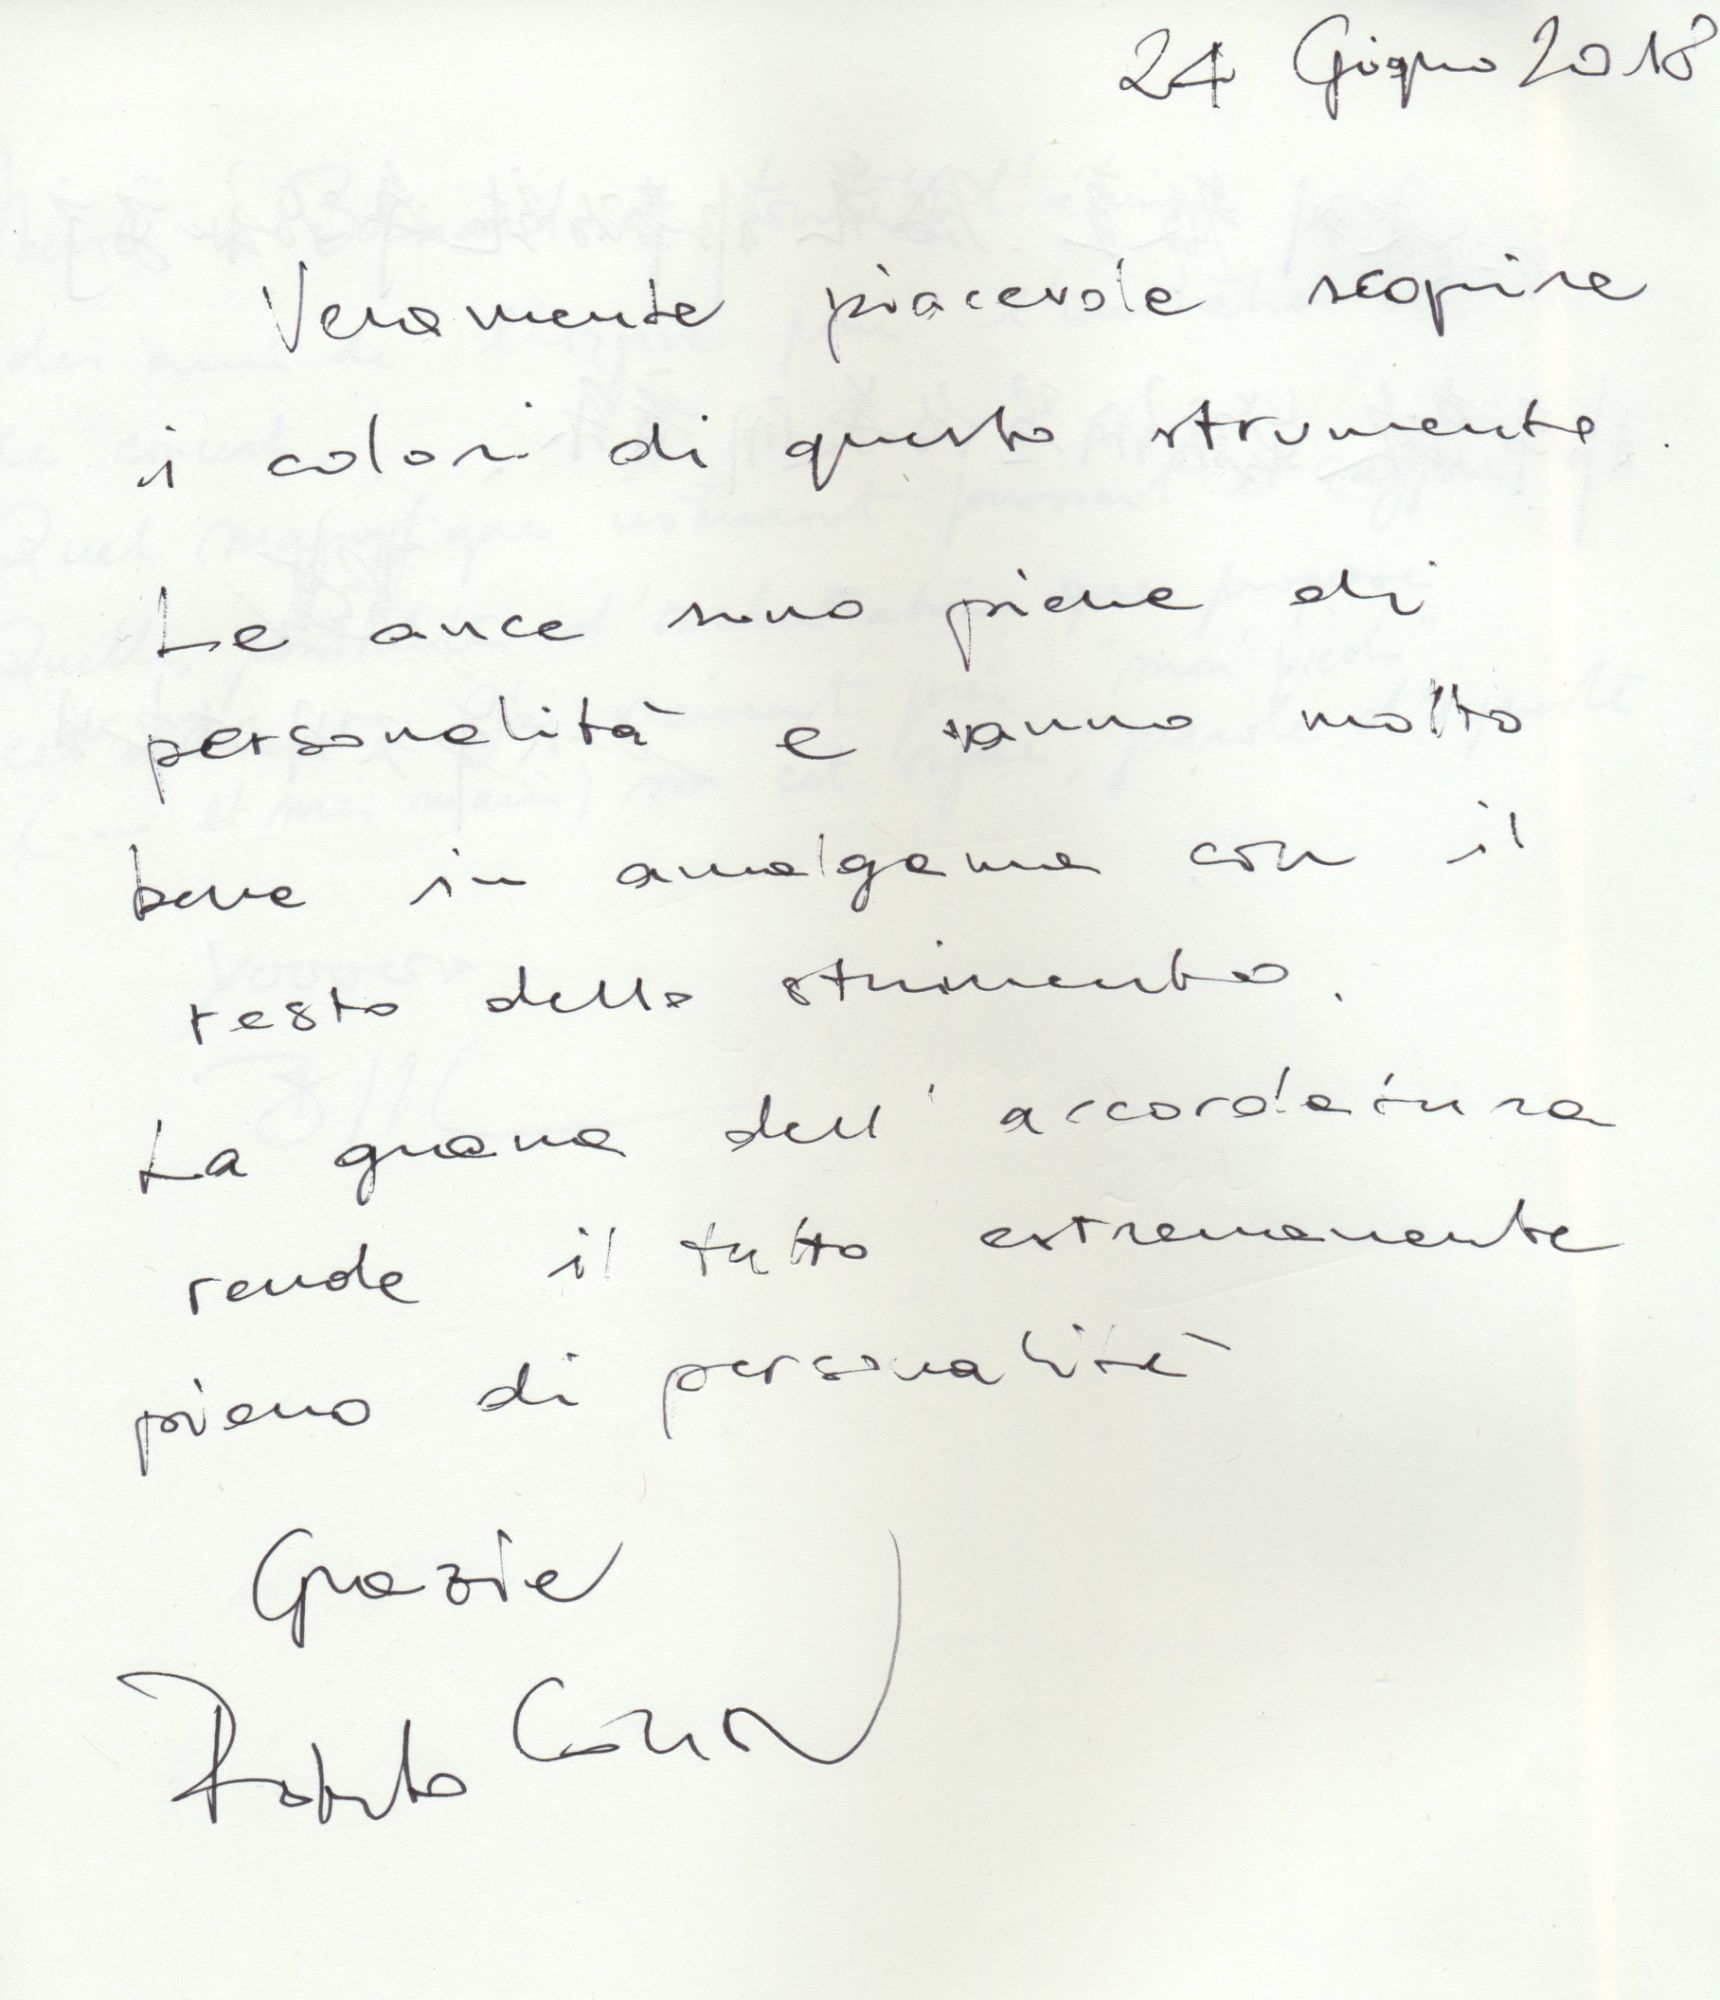 24 Giugno 2018
Veramente piacevole scoprire
i colori di questo strumento.
Le ance sono piene di
personalità e vanno molto
bene in amalgama con il
resto dello strumento.
La grana dell'accordatura
rende il tutto estremamente
pieno di personalità
Grazie
Roberto